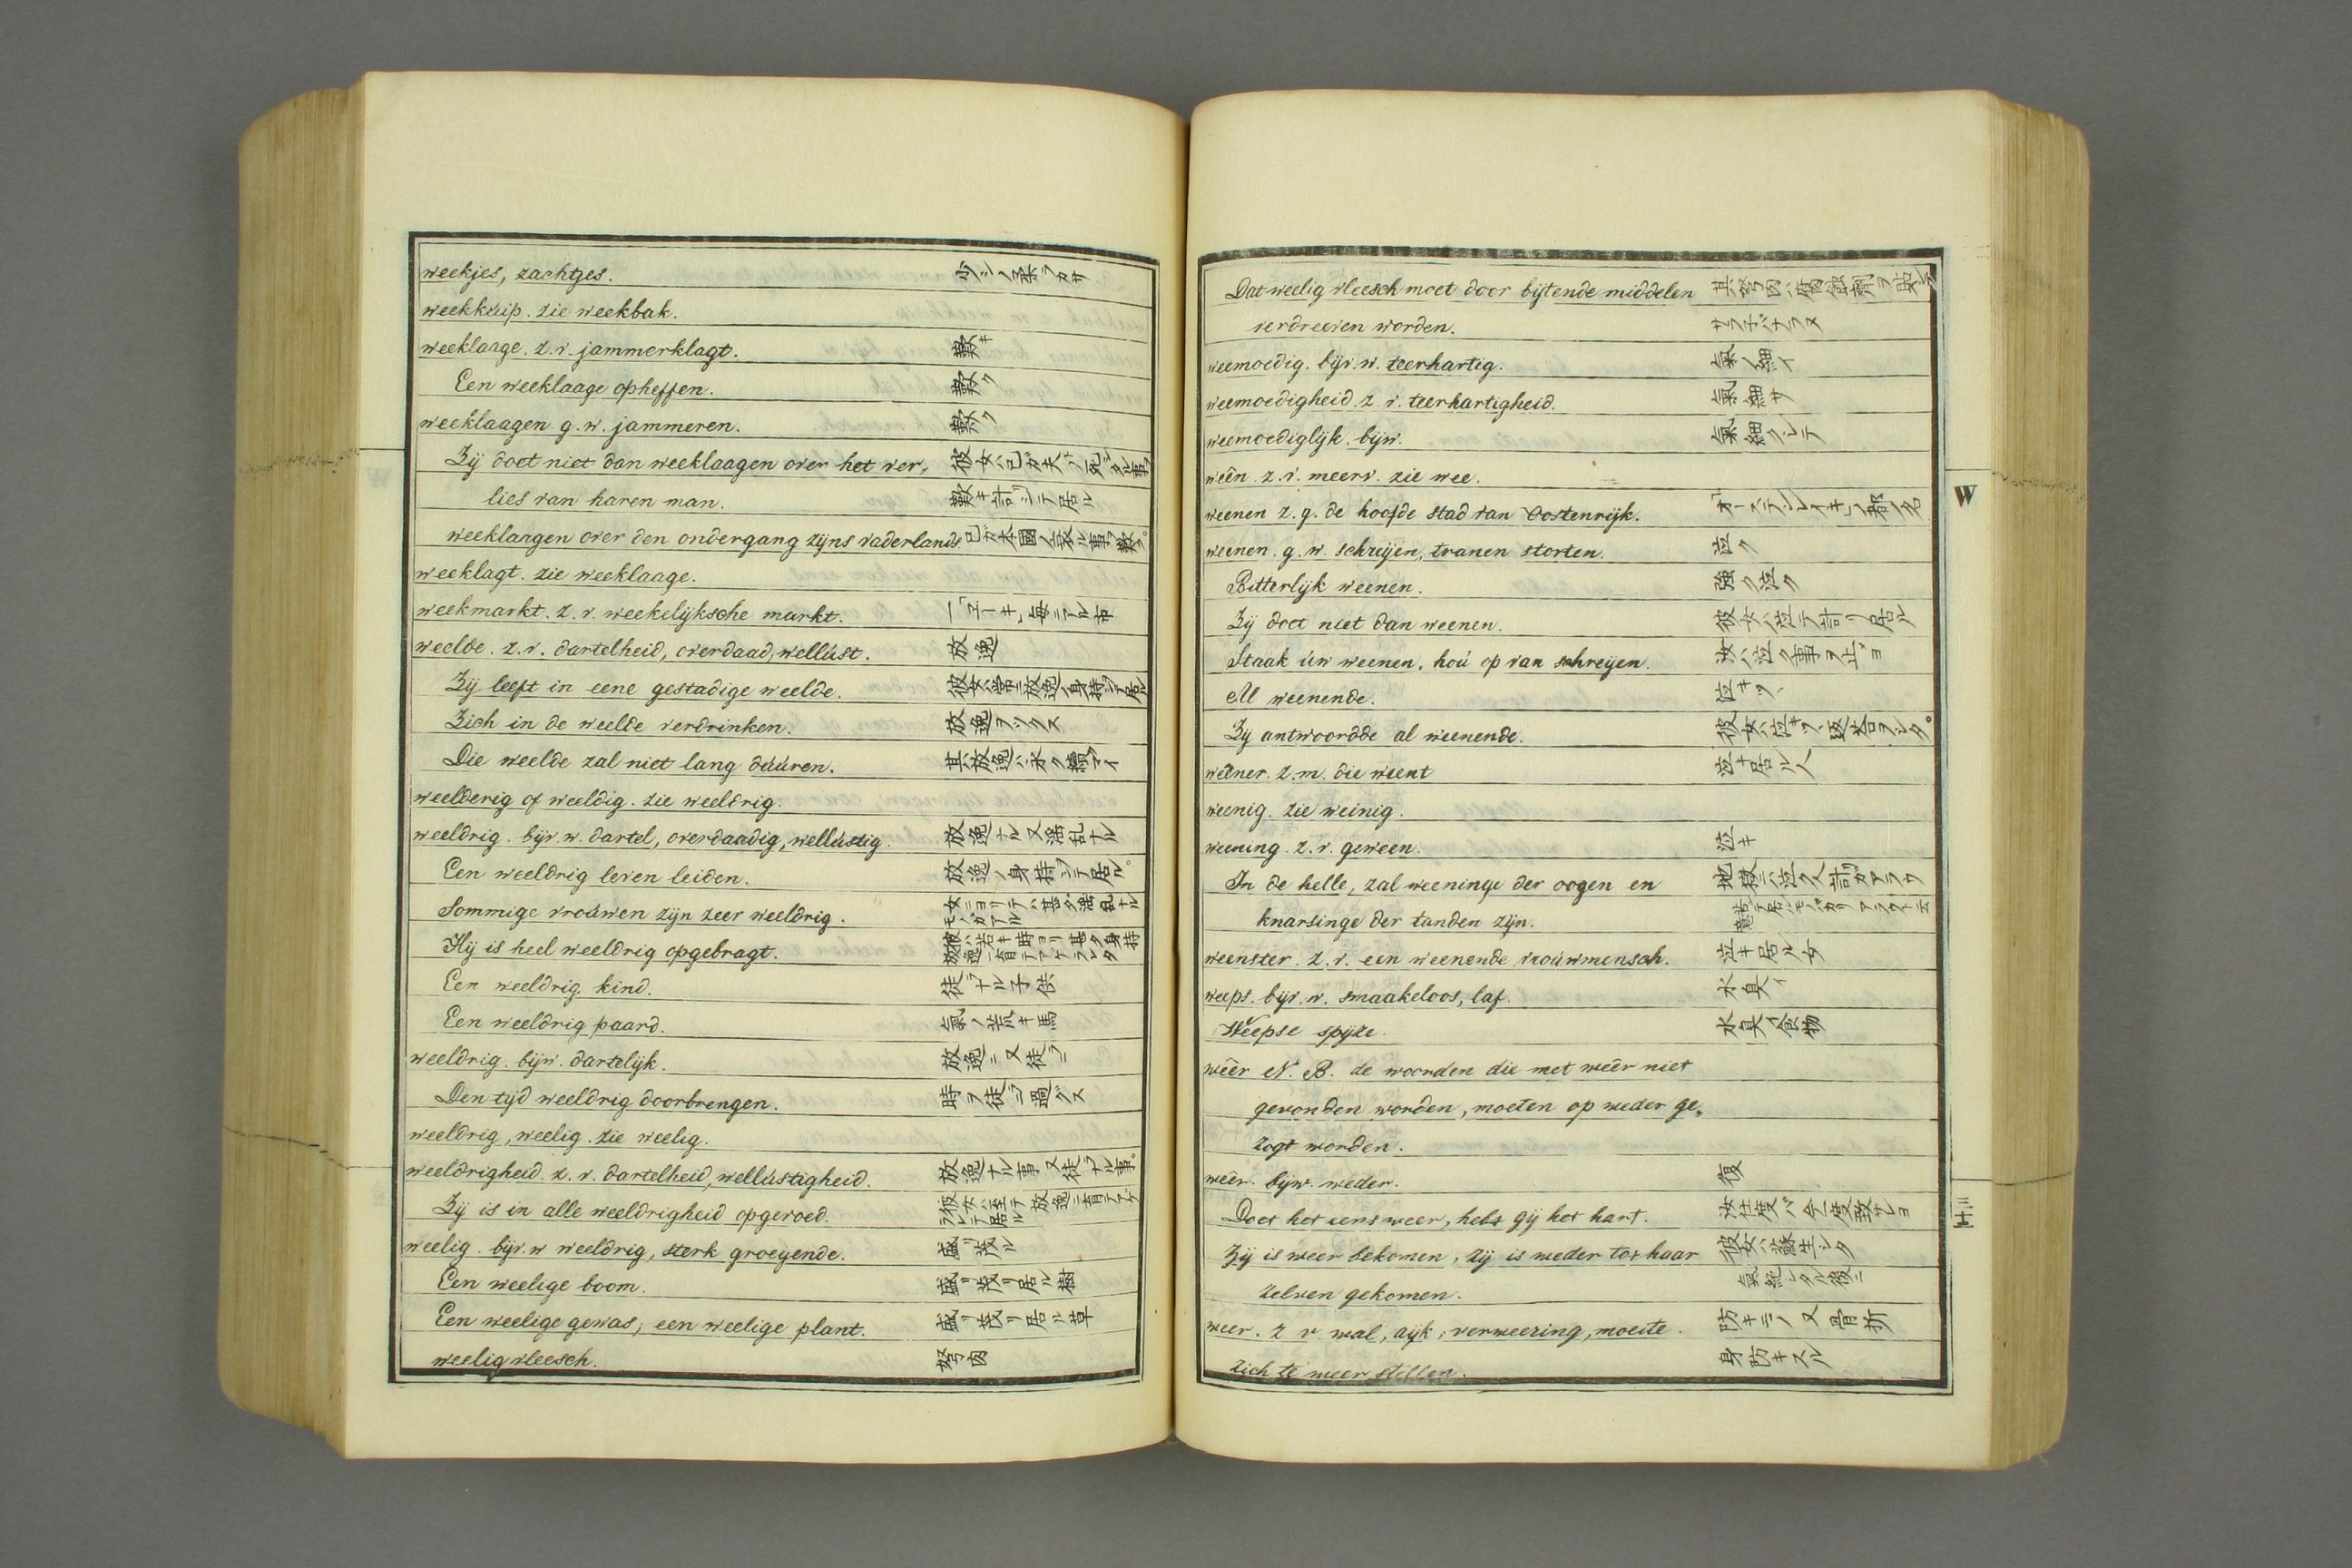 weekjes, zachtges. 少シノ柔ラカサ
weekkúip. zie weekbak.
weeklaage. z.v. jammerklagt. 歎キ
Een weeklaage opheffen. 歎ク
weeklaagen. g.w. jammeren. 歎ク
Zij doet niet dan weeklaagen over het ver„ 彼女ハ己ガ夫ノ死シタル事ヲ
lies van haren man. 歎キ計リシテ居ル
weeklaagen over den ondergang zijns vaderlands. 己ガ本國ノ衰ル事ヲ歎ク。
weeklagt. zie weeklaage.
weekmarkt. z.v. weekelijksche markt. 一「ヱーキ」毎ニアル市
weelde. z.v. dartelheid, overdaad, wellúst. 放逸
Zij leeft in eene gestadige weelde. 彼女ハ常ニ放逸ノ身持シテ居ル
Zich in de weelde verdrinken. 放逸ヲツクス
Die weelde zal niet lang dúúren. 其放逸ハ永ク續クマイ
weelderig of weeldig. zie weeldrig.
weeldrig. bijv.w. dartel, overdaadig, wellústig. 放逸ナル又淫乱ナル
Een weeldrig leven leiden. 放逸ノ身持シテ居ル。
Sommige vroúwen zijn zeer weeldrig. 女ニヨリテハ甚ダ淫乱ナルモノガアル
Hij is heel weeldrig opgebragt. 彼ハ若キ時ヨリ甚ク身持放逸ニ育テアケラレタ
Een weeldrig kind. 徒ラナル子供
Een weeldrig paard. 氣ノ荒キ馬
weeldrig. bijw. dartelijk. 放逸ニ又徒ラニ
Den tijd weeldrig doorbrengen. 時ヲ徒ラニ過グス
weeldrig, weelig. zie weelig.
weeldrigheid. z.v. dartelheid, wellústigheid. 放逸ナル事又徒ラナル事。
Zij is in alle weeldrigheid opgevoed. 彼女ハ至テ放逸ニ育テアゲラレテ居ル
weelig. bijv.w weeldrig, sterk groeyende. 盛リ茂ル
Een weelige boom. 盛リ茂リ居ル樹
Een weelige gewas, een weelige plant. 盛リ茂リ居ル草
weelig vleesch. 努肉
Dat weelig vleesch moet door bijtende middelen 其努肉ハ腐蝕劑ヲ貼シテ
verdreeven worden. サラネバナラヌ
weemoedig. bijv.w. teerhartig. 氣ノ細イ
weemoedigheid. z.v. teerhartigheid. 氣細サ
weemoediglijk. bijw. 氣細クシテ
weên. z.v. meerv. zie wee.
weenen z.g. de hoofde stad van Oostenrijk. 「ヲーステンレイキ」ノ都ノ名
weenen. g.w. schreijen, tranen storten. 泣ク
Bitterlijk weenen. 強ク泣ク
Zij doet niet dan weenen. 彼女ハ泣テ計リ居ル
Staak úw weenen, hoú op van schreijen. 汝ハ泣ク事ヲ止ヨ
Al weenende. 泣キツヽ
Zij antwoordde al weenende. 彼女ハ泣キツヽ返答ヲシタ。
weener. z.m. die weent 泣キ居ル人
weenig. zie weinig.
weening. z.v. geween. 泣キ
In de helle, zal weeninge der oogen en 地獄ニハ泣ク人計ガアラウ
knarsinge der tanden zijn.
weenster. z.v. een weenende vroúwmensch. 泣キ居ル女
weeps. bijv.w. smaakeloos, laf. 水臭イ
Weepse spijze. 水臭イ食物
wêêr N.B. de woorden die met weêr niet
gevonden worden, moeten op weder ge„
zogt worden.
wêêr. bijw. weder. 復
Doet het eens weer, hebt gij het hart. 汝仕度バ今一度致セヨ
Zij is weer bekomen, zij is weder tot haar 彼女ハ蘇生シタ
zelven gekomen. 氣絶シタル後ニ
weer. z v. wal, dijk, verweering, moeite. 防キモノ又骨折
zich te weer stellen. 身防キスル
W